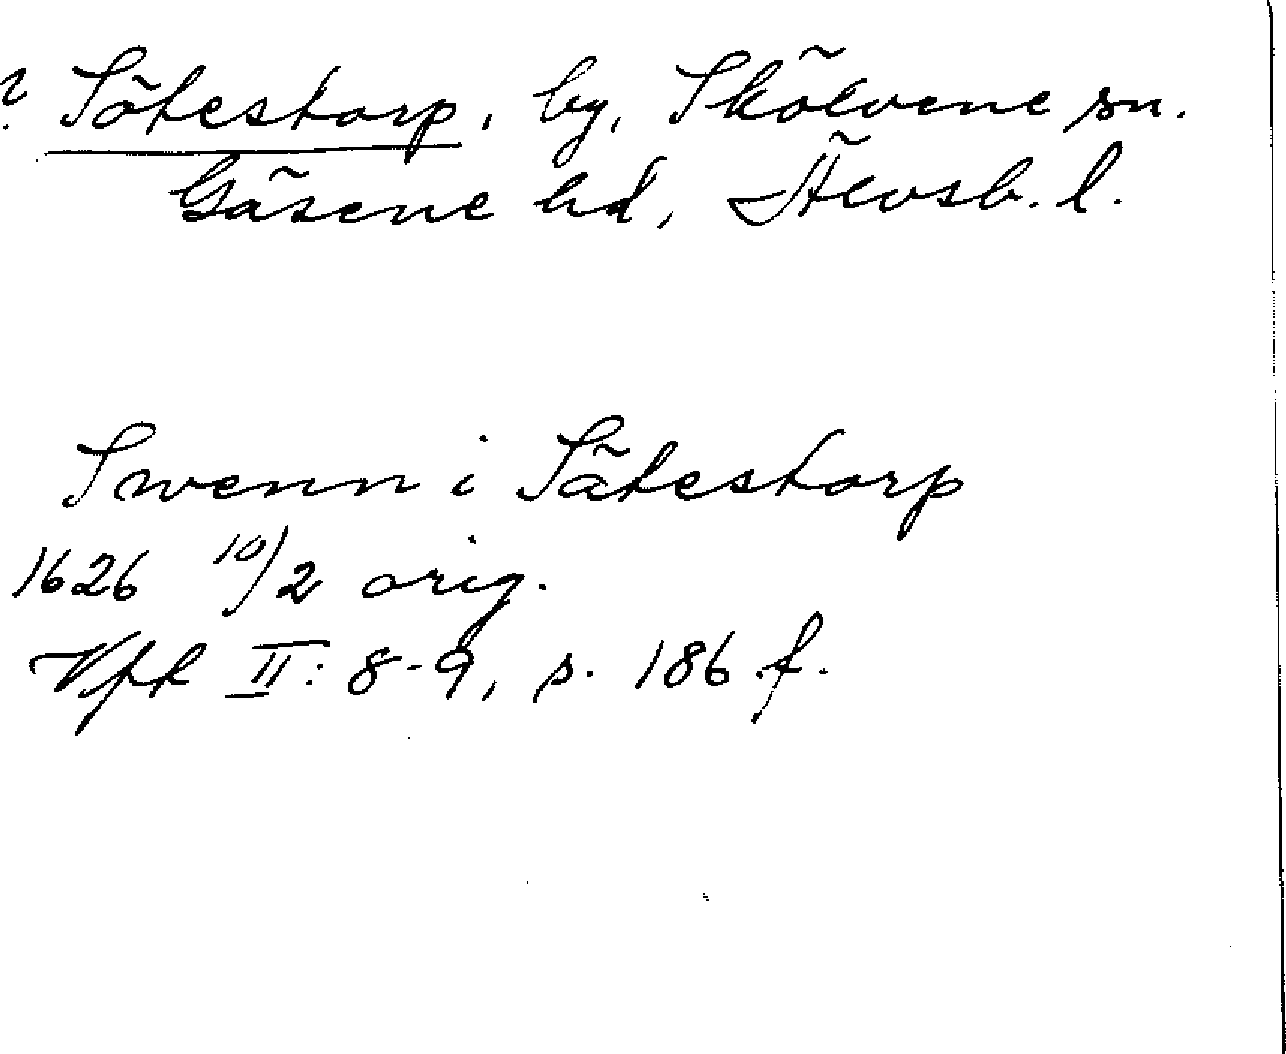 ? Sötestorp, by, Skölvene sn.
Gäsene hd, Älvsb. l.
Swenn i Sätestorp
1626 10/2 orig.
Vfk II: 8-9, s. 186 f.